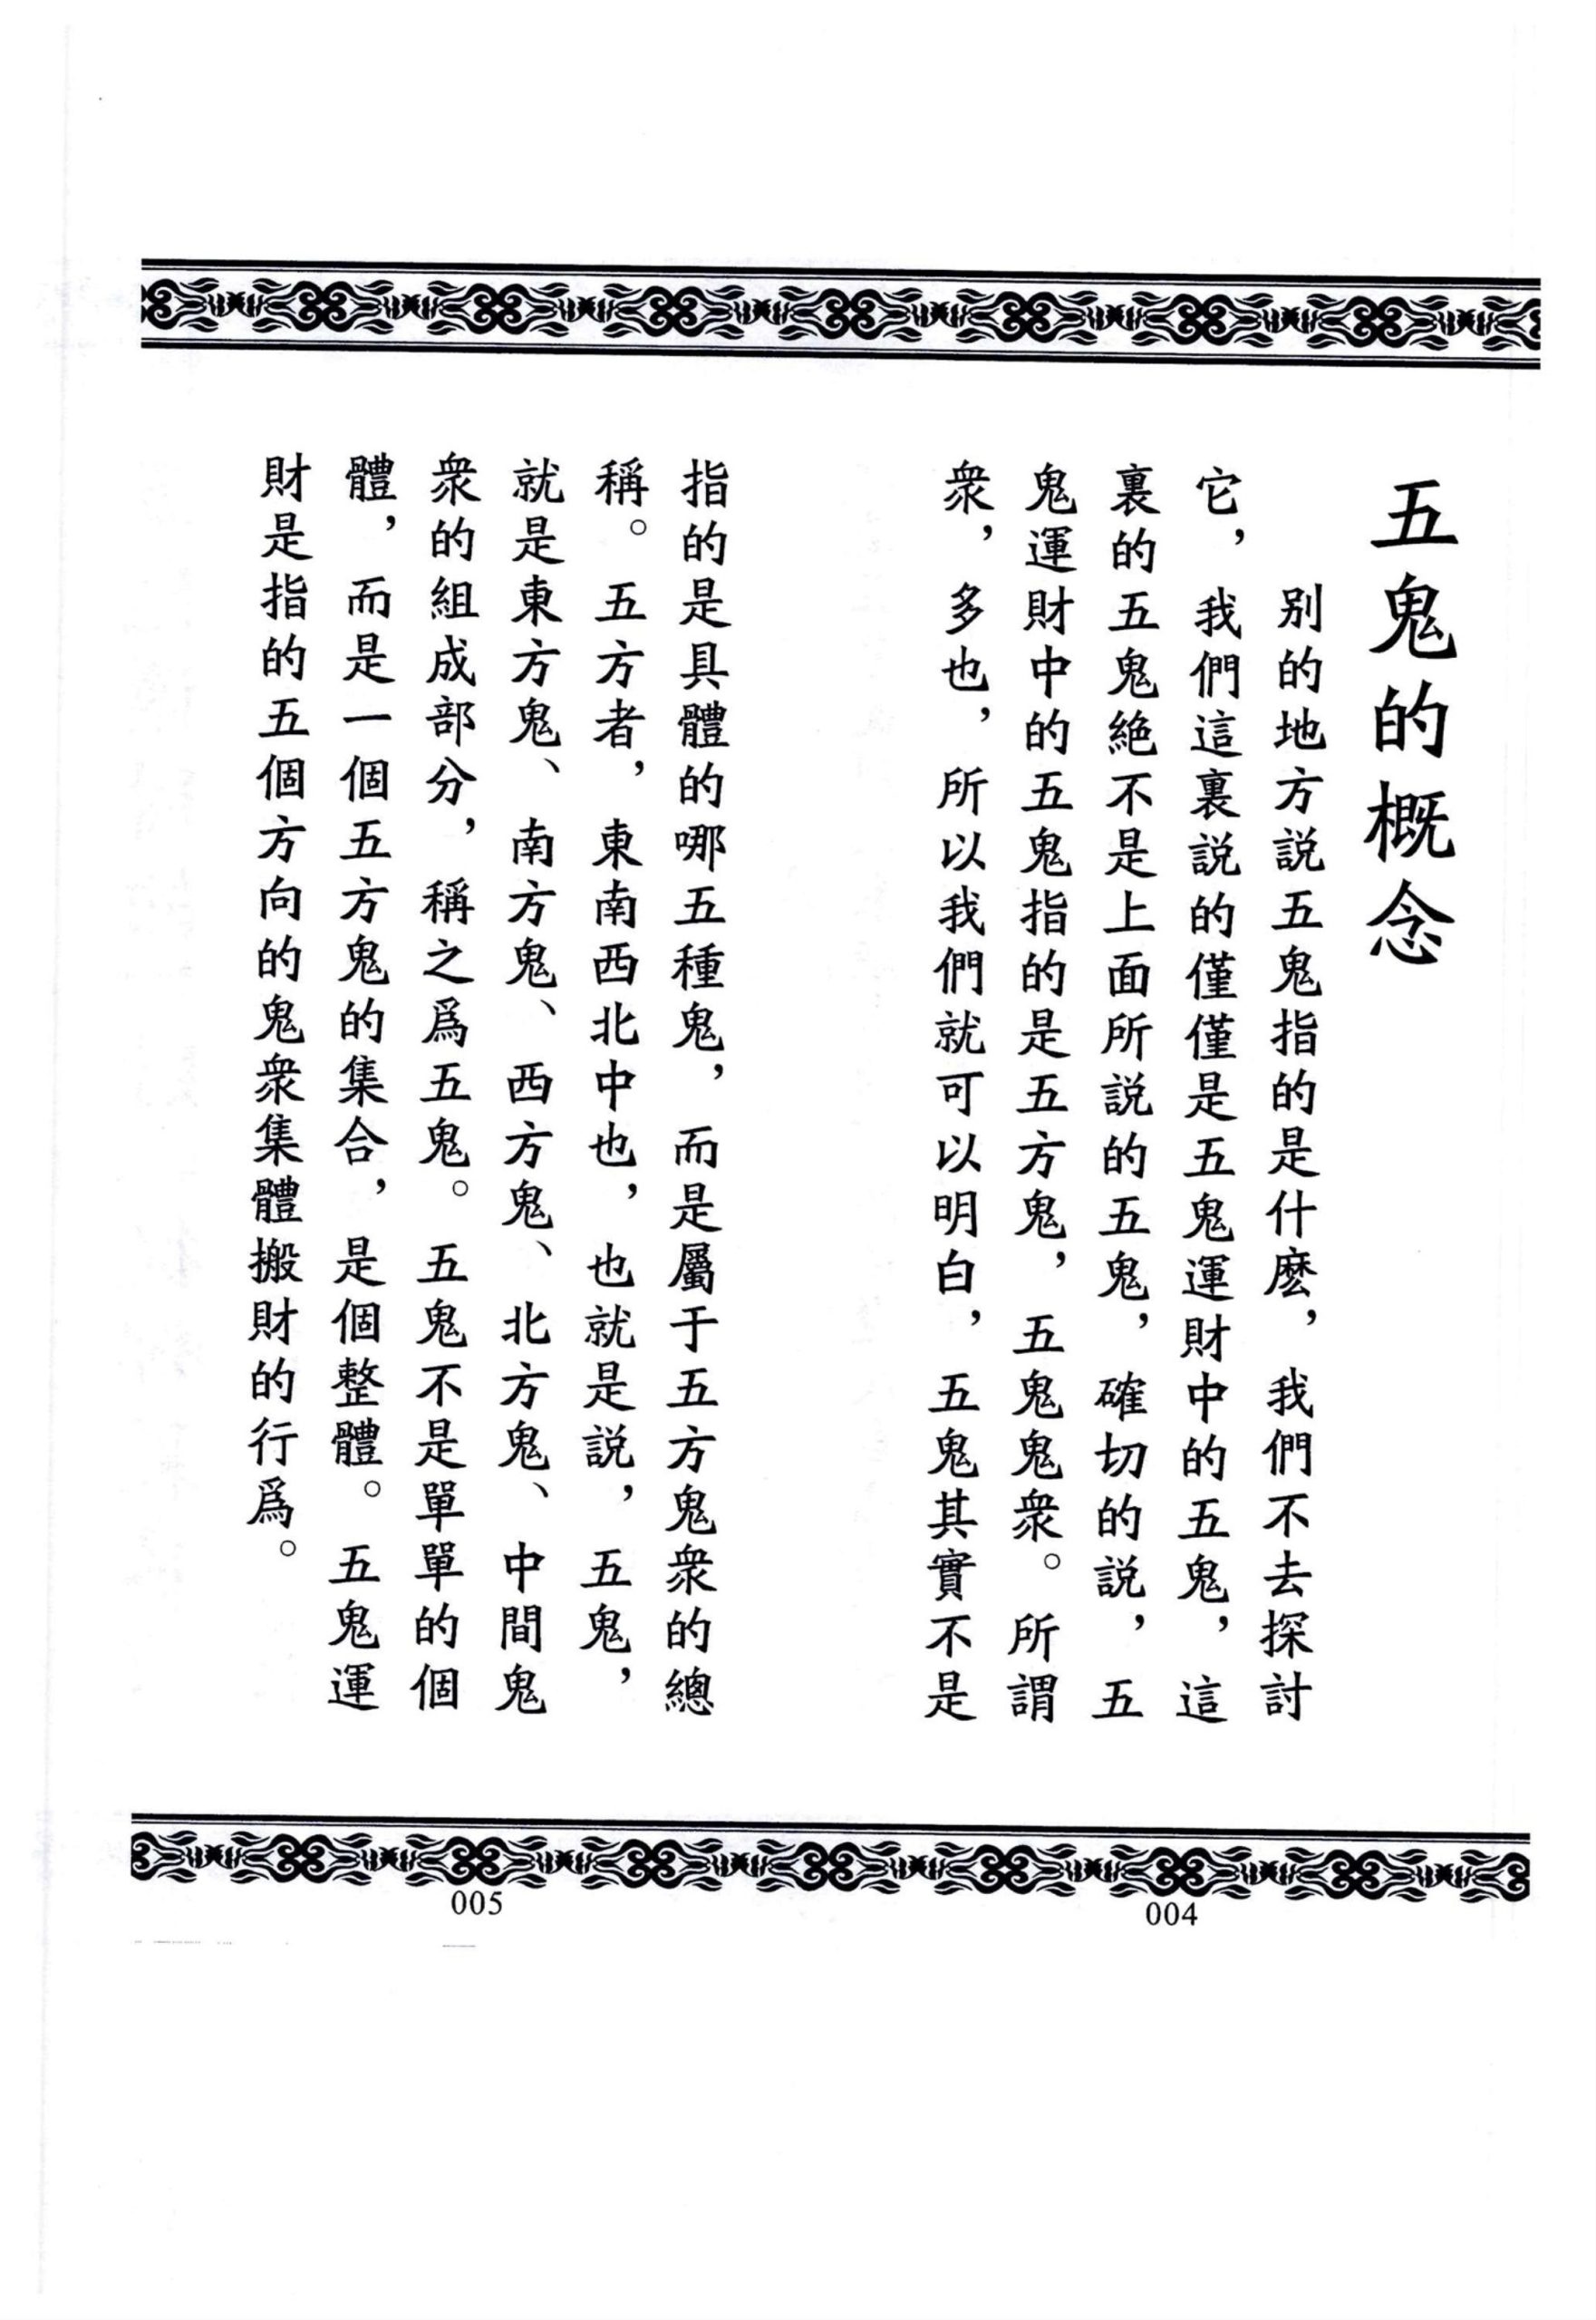 五鬼的概念
别的地方説五鬼指的是什麽，我們不去探討
它，我們這裏説的僅僅是五鬼運財中的五鬼，這
裏的五鬼絶不是上面所説的五鬼，確切的説，五
鬼運財中的五鬼指的是五方鬼，五鬼鬼衆。所謂
衆，多也，所以我們就可以明白，五鬼其實不是
004
指的是具體的哪五種鬼，而是屬于五方鬼衆的總
稱。五方者，東南西北中也，也就是説，五鬼，
就是東方鬼、南方鬼、西方鬼、北方鬼、中間鬼
衆的組成部分，稱之爲五鬼。五鬼不是單單的個
體，而是一個五方鬼的集合，是個整體。五鬼運
財是指的五個方向的鬼衆集體搬財的行爲。
005